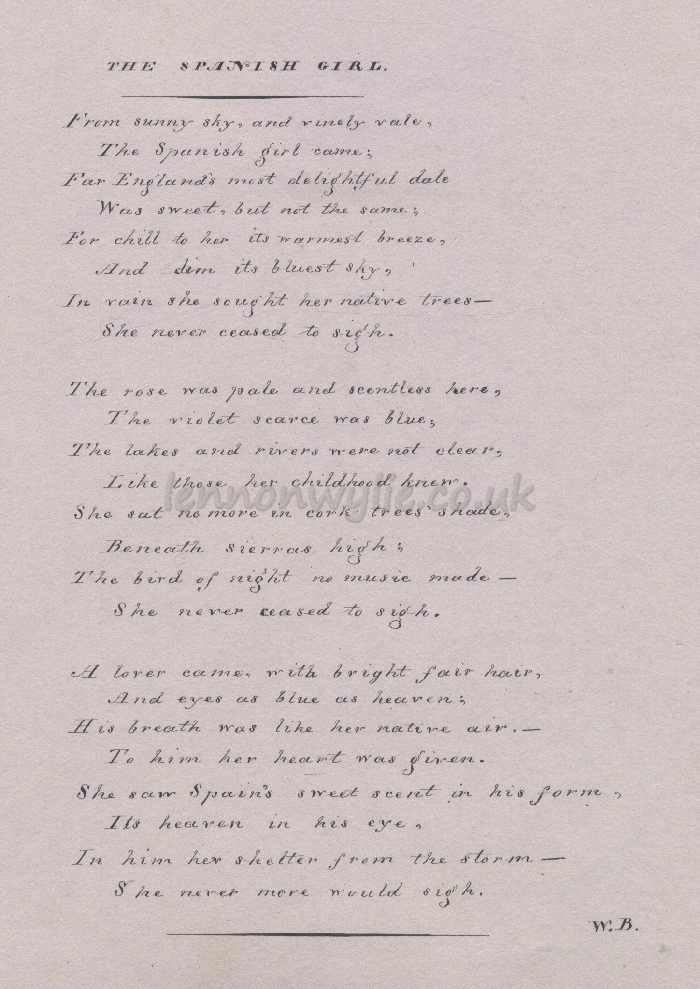 THE SPANISH GIRL.
From sunny sky, and vinely vale,
The Spanish girl came;
Far England's most delightful dale
Was sweet, but not the same;
For chill to her its warmest breeze,
And dim its bluest sky,
In vain she sought her native trees—
She never ceased to sigh.
The rose was pale and scentless here,
The violet scarce was blue;
The lakes and rivers were not clear,
Like those her childhood knew.
lennonwylie.co.uk
She sat no more in cork trees' shade,
Beneath sierras high;
The bird of night no music made —
She never ceased to sigh.
A lover came, with bright fair hair,
And eyes as blue as heaven;
His breath was like her native air.—
To him her heart was given.
She saw Spain's sweet scent in his form,
Its heaven in his eye,
In him her shelter from the storm —
She never more would sigh.
W.B.